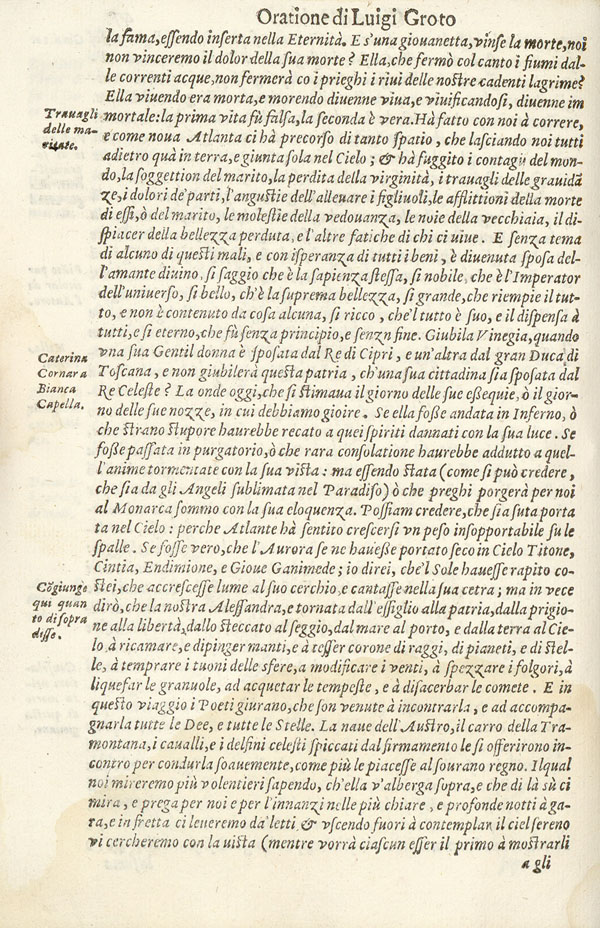 Oratione di Luigi Groto
la fama, eſſendo inſerta nella Eternità. E s'una giouanetta, vinſe la morte, noi
non vinceremo il dolor della ſua morte? Ella, che fermò col canto i fiumi dal-
le correnti acque, non fermerà co i prieghi i riui delle noſtre cadenti lagrime?
Ella viuendo era morta, e morendo diuenne viua, e viuificandoſi, diuenne im
mortale: la prima vita fù falſa, la ſeconda è vera. Hà fatto con noi à correre,
e come noua Atlanta ci hà precorſo di tanto ſpatio, che laſciando noi tutti
adietro quà in terra, e giunta ſola nel Cielo; & hà fuggito i contagij del mon-
do, la ſoggettion del marito, la perdita della virginità, i trauagli delle grauidā
ze, i dolori de' parti, l'anguſtie dell'alleuare i figliuoli, le afflittioni della morte
di eſſi, ò del marito, le moleſtie della vedouanza, le noie della vecchiaia, il di-
ſpiacer della bellezza perduta, e l'altre fatiche di chi ci viue. E ſenza tema
di alcuno di queſti mali, e con iſperanza di tutti i beni, è diuenuta ſpoſa del-
l'amante diuino, ſi ſaggio che è la ſapienza ſteſſa, ſi nobile, che è l'Imperator
dell'uniuerſo, ſi bello, ch'è la ſuprema bellezza, ſi grande, che riempie il tut-
to, e non è contenuto da coſa alcuna, ſi ricco, che'l tutto è ſuo, e il diſpenſa à
tutti, e ſi eterno, che fù ſenza principio, e ſenzn fine. Giubila Vinegia, quando
vna ſua Gentil donna è ſpoſata dal Re di Cipri, e un'altra dal gran Duca di
Toſcana, e non giubilerà queſta patria, ch'una ſua cittadina ſia ſpoſata dal
Re Celeſte? La onde oggi, che ſi ſtimaua il giorno delle ſue eſſequie, ò il gior-
no delle ſue nozze, in cui debbiamo gioire. Se ella foſſe andata in Inferno, ò
che ſtrano ſtupore haurebbe recato a quei ſpiriti dannati con la ſua luce. Se
foſſe paſſata in purgatorio, ò che rara conſolatione haurebbe addutto a quel-
l'anime tormentate con la ſua viſta: ma eſſendo ſtata (come ſi può credere,
che ſia da gli Angeli ſublimata nel Paradiſo) ò che preghi porgerà per noi
al Monarca ſommo con la ſua eloquenza. Poſſiam credere, che ſia ſuta porta
ta nel Cielo: perche Atlante hà ſentito creſcerſi vn peſo inſopportabile ſu le
ſpalle. Se foſſe vero, che l'Aurora ſe ne haueſſe portato ſeco in Cielo Titone,
Cintia, Endimione, e Gioue Ganimede; io direi, che'l Sole haueſſe rapito co-
ſtei, che accreſceſſe lume al ſuo cerchio, e cantaſſe nella ſua cetra; ma in vece
dirò, che la noſtra Aleſſandra, e tornata dall'eſſiglio alla patria, dalla prigio-
ne alla libertà, dallo ſteccato al ſeggio, dal mare al porto, e dalla terra al Cie-
lo à ricamare, e dipinger manti, e à teſſer corone di raggi, di pianeti, e di ſtel-
le, à temprare i tuoni delle sfere, a modificare i venti, à ſpezzare i folgori, à
liquefar le granuole, ad acquetar le tempeſte, e à diſacerbar le comete. E in
queſto viaggio i Poeti giurano, che ſon venute à incontrarla, e ad accompa-
gnarla tutte le Dee, e tutte le Stelle. La naue dell'Auſtro, il carro della Tra-
montana, i caualli, e i delfini celeſti ſpiccati dal firmamento le ſi offerirono in-
contro per condurla ſoauemente, come più le piaceſſe al ſourano regno. Il qual
noi mireremo più volentieri ſapendo, ch'ella v'alberga ſopra, e che di là sù ci
mira, e prega per noi e per l'innanzi nelle più chiare, e profonde notti à ga-
ra, e in fretta ci leueremo da' letti, & vſcendo fuori à contemplar il ciel ſereno
vi cercheremo con la uiſta (mentre vorrà ciaſcun eſſer il primo à moſtrarli
a gli
Trauagli
delle ma-
ritate.
Caterina
Cornara
Bianca
Capella.
Cōgiunge
qui quan
to di ſopra
diſſe.